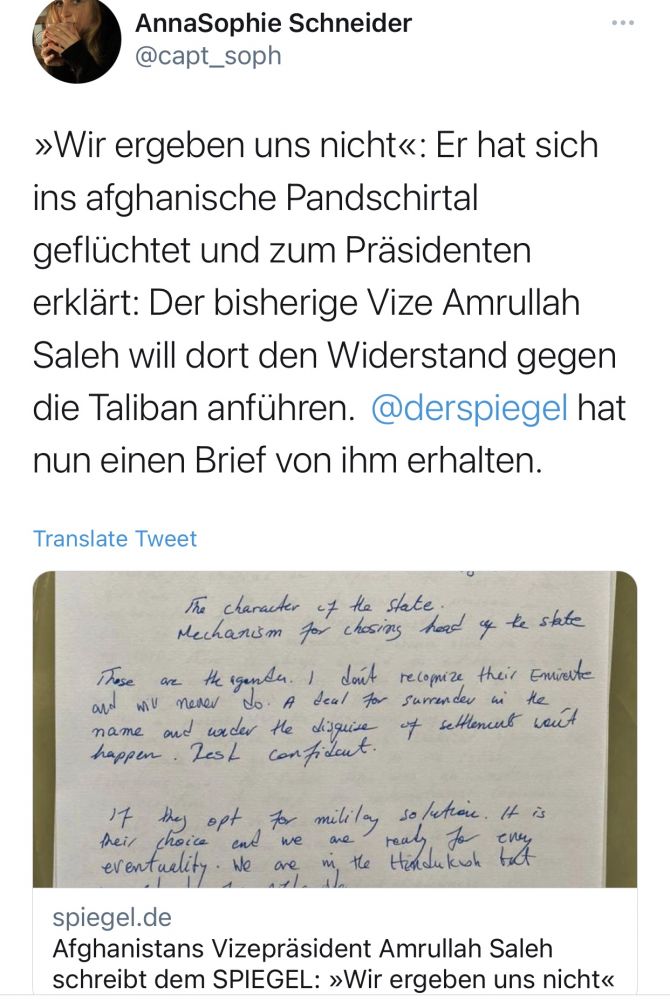 AnnaSophie Schneider
@capt_soph
»Wir ergeben uns nicht«: Er hat sich
ins afghanische Pandschirtal
geflüchtet und zum Präsidenten
erklärt: Der bisherige Vize Amrullah
Saleh will dort den Widerstand gegen
die Taliban anführen. @derspiegel hat
nun einen Brief von ihm erhalten.
Translate Tweet
The character of the state.
Mechanism for chosing head of the state
These are the agendas. I don't recognize their Emirate
and will never do. A deal for surrender in the
name and under the disguise of settlement won't
happen. Rest confident.
If they opt for military solution. It is
their choice and we are ready for every
eventuality. We are in the Hindukush but
spiegel.de
Afghanistans Vizepräsident Amrullah Saleh
schreibt dem SPIEGEL: »Wir ergeben uns nicht«